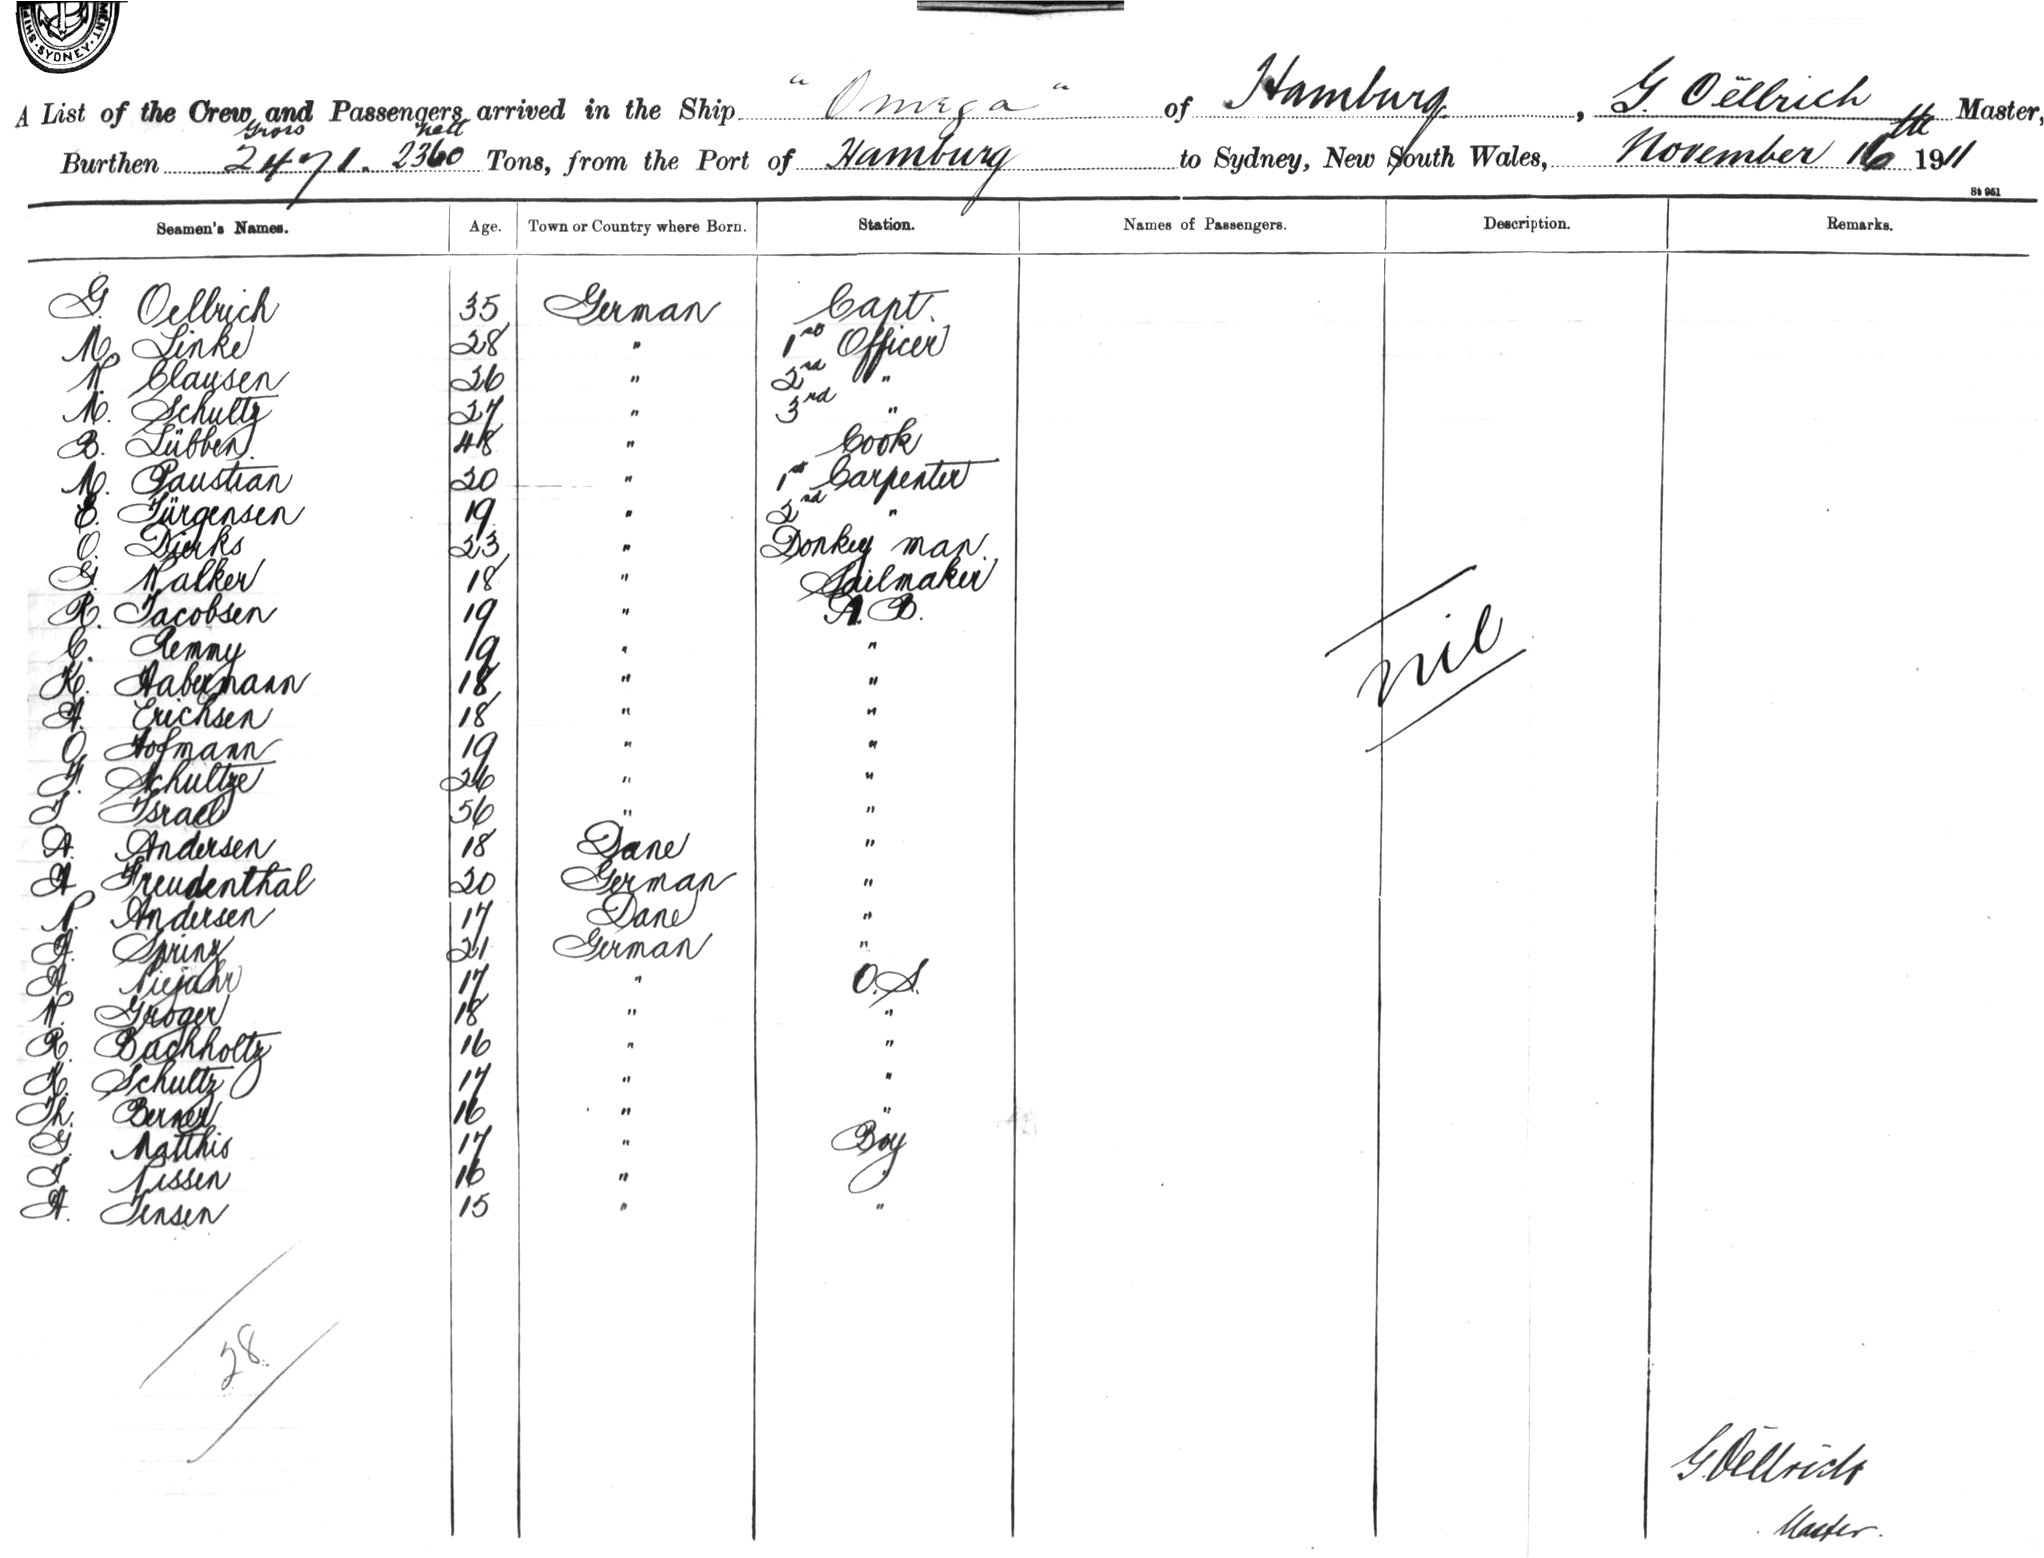 SYDNEY
A List of the Crew and Passengers arrived in the Ship "Omega" of Hamburg, G. Oellrich Master,
Gross Nett
Burthen 2471. 2360 Tons, from the Port of Hamburg to Sydney, New South Wales, November 16th 1911
St 951
Seamen's Names. Age. Town or Country where Born. Station. Names of Passengers. Description. Remarks.
G. Oellrich 35 German Capt.
M. Linke 28 " 1st Officer
W. Clausen 26 " 2nd "
M. Schultz 27 " 3rd "
B. Lübben. 48 " Cook
M. Paustian 20 " 1st Carpenter
E. Jürgensen 19 " 2nd "
O. Dierks 23 " Donkey man.
G. Walker 18 " Sailmaker
R. Jacobsen 19 " A.B.
C. Remmy 19 " "
K. Habermann 18 " "
A. Erichsen 18 " "
O. Hofmann 19 " "
F. Schultze 26 " "
J. Israel 56 " "
A. Andersen 18 Dane "
A Freudenthal 20 German "
P. Andersen 17 Dane "
A. Sprinx 21 German "
A Niejahr 17 " O.S.
W. Groger 18 " "
R. Bachholtz 16 " "
K. Schultz 17 " "
Th. Berner 16 " "
G. Matthis 17 " Boy
J Nissen 16 " "
A. Jensen 15 " "
nil
28.
G. Oellrich
Master.